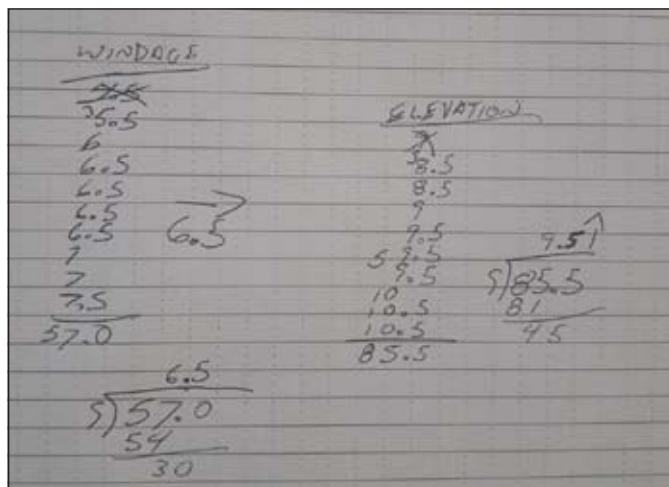 WINDAGE
5.5
6
6.5
6.5
6.5
6.5
7
7
7.5
57.0
→
6.5
6.5
9)57.0
54
30
ELEVATION
8.5
8.5
9
9.5
9.5
9.5
10
10.5
10.5
85.5
9.5↑
9)85.5
81
45